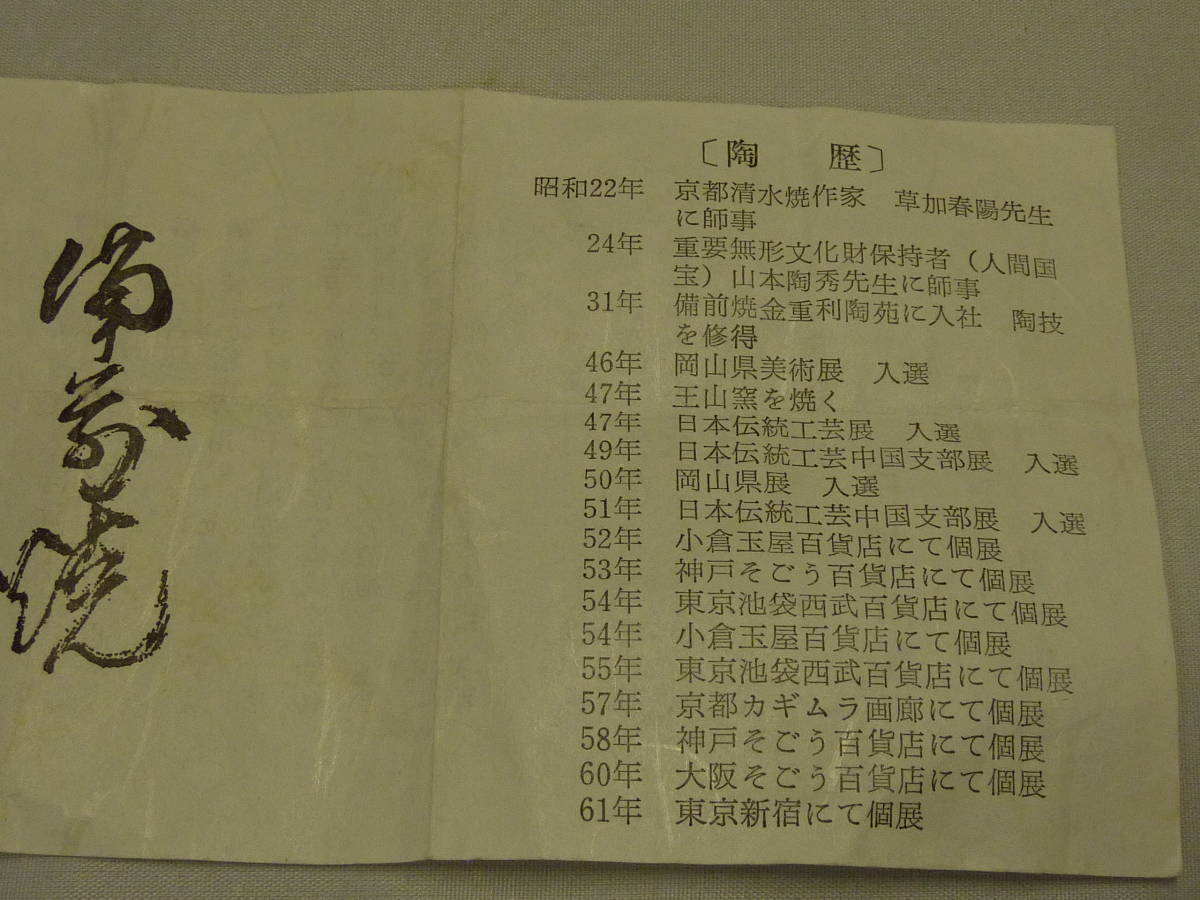 〔陶　歴〕
昭和22年　京都清水焼作家　草加春陽先生
に師事
24年　重要無形文化財保持者（人間国
宝）山本陶秀先生に師事
31年　備前焼金重利陶苑に入社　陶技
を修得
46年　岡山県美術展　入選
47年　王山窯を焼く
47年　日本伝統工芸展　入選
49年　日本伝統工芸中国支部展　入選
50年　岡山県展　入選
51年　日本伝統工芸中国支部展　入選
52年　小倉玉屋百貨店にて個展
53年　神戸そごう百貨店にて個展
54年　東京池袋西武百貨店にて個展
54年　小倉玉屋百貨店にて個展
55年　東京池袋西武百貨店にて個展
57年　京都カギムラ画廊にて個展
58年　神戸そごう百貨店にて個展
60年　大阪そごう百貨店にて個展
61年　東京新宿にて個展
備前焼